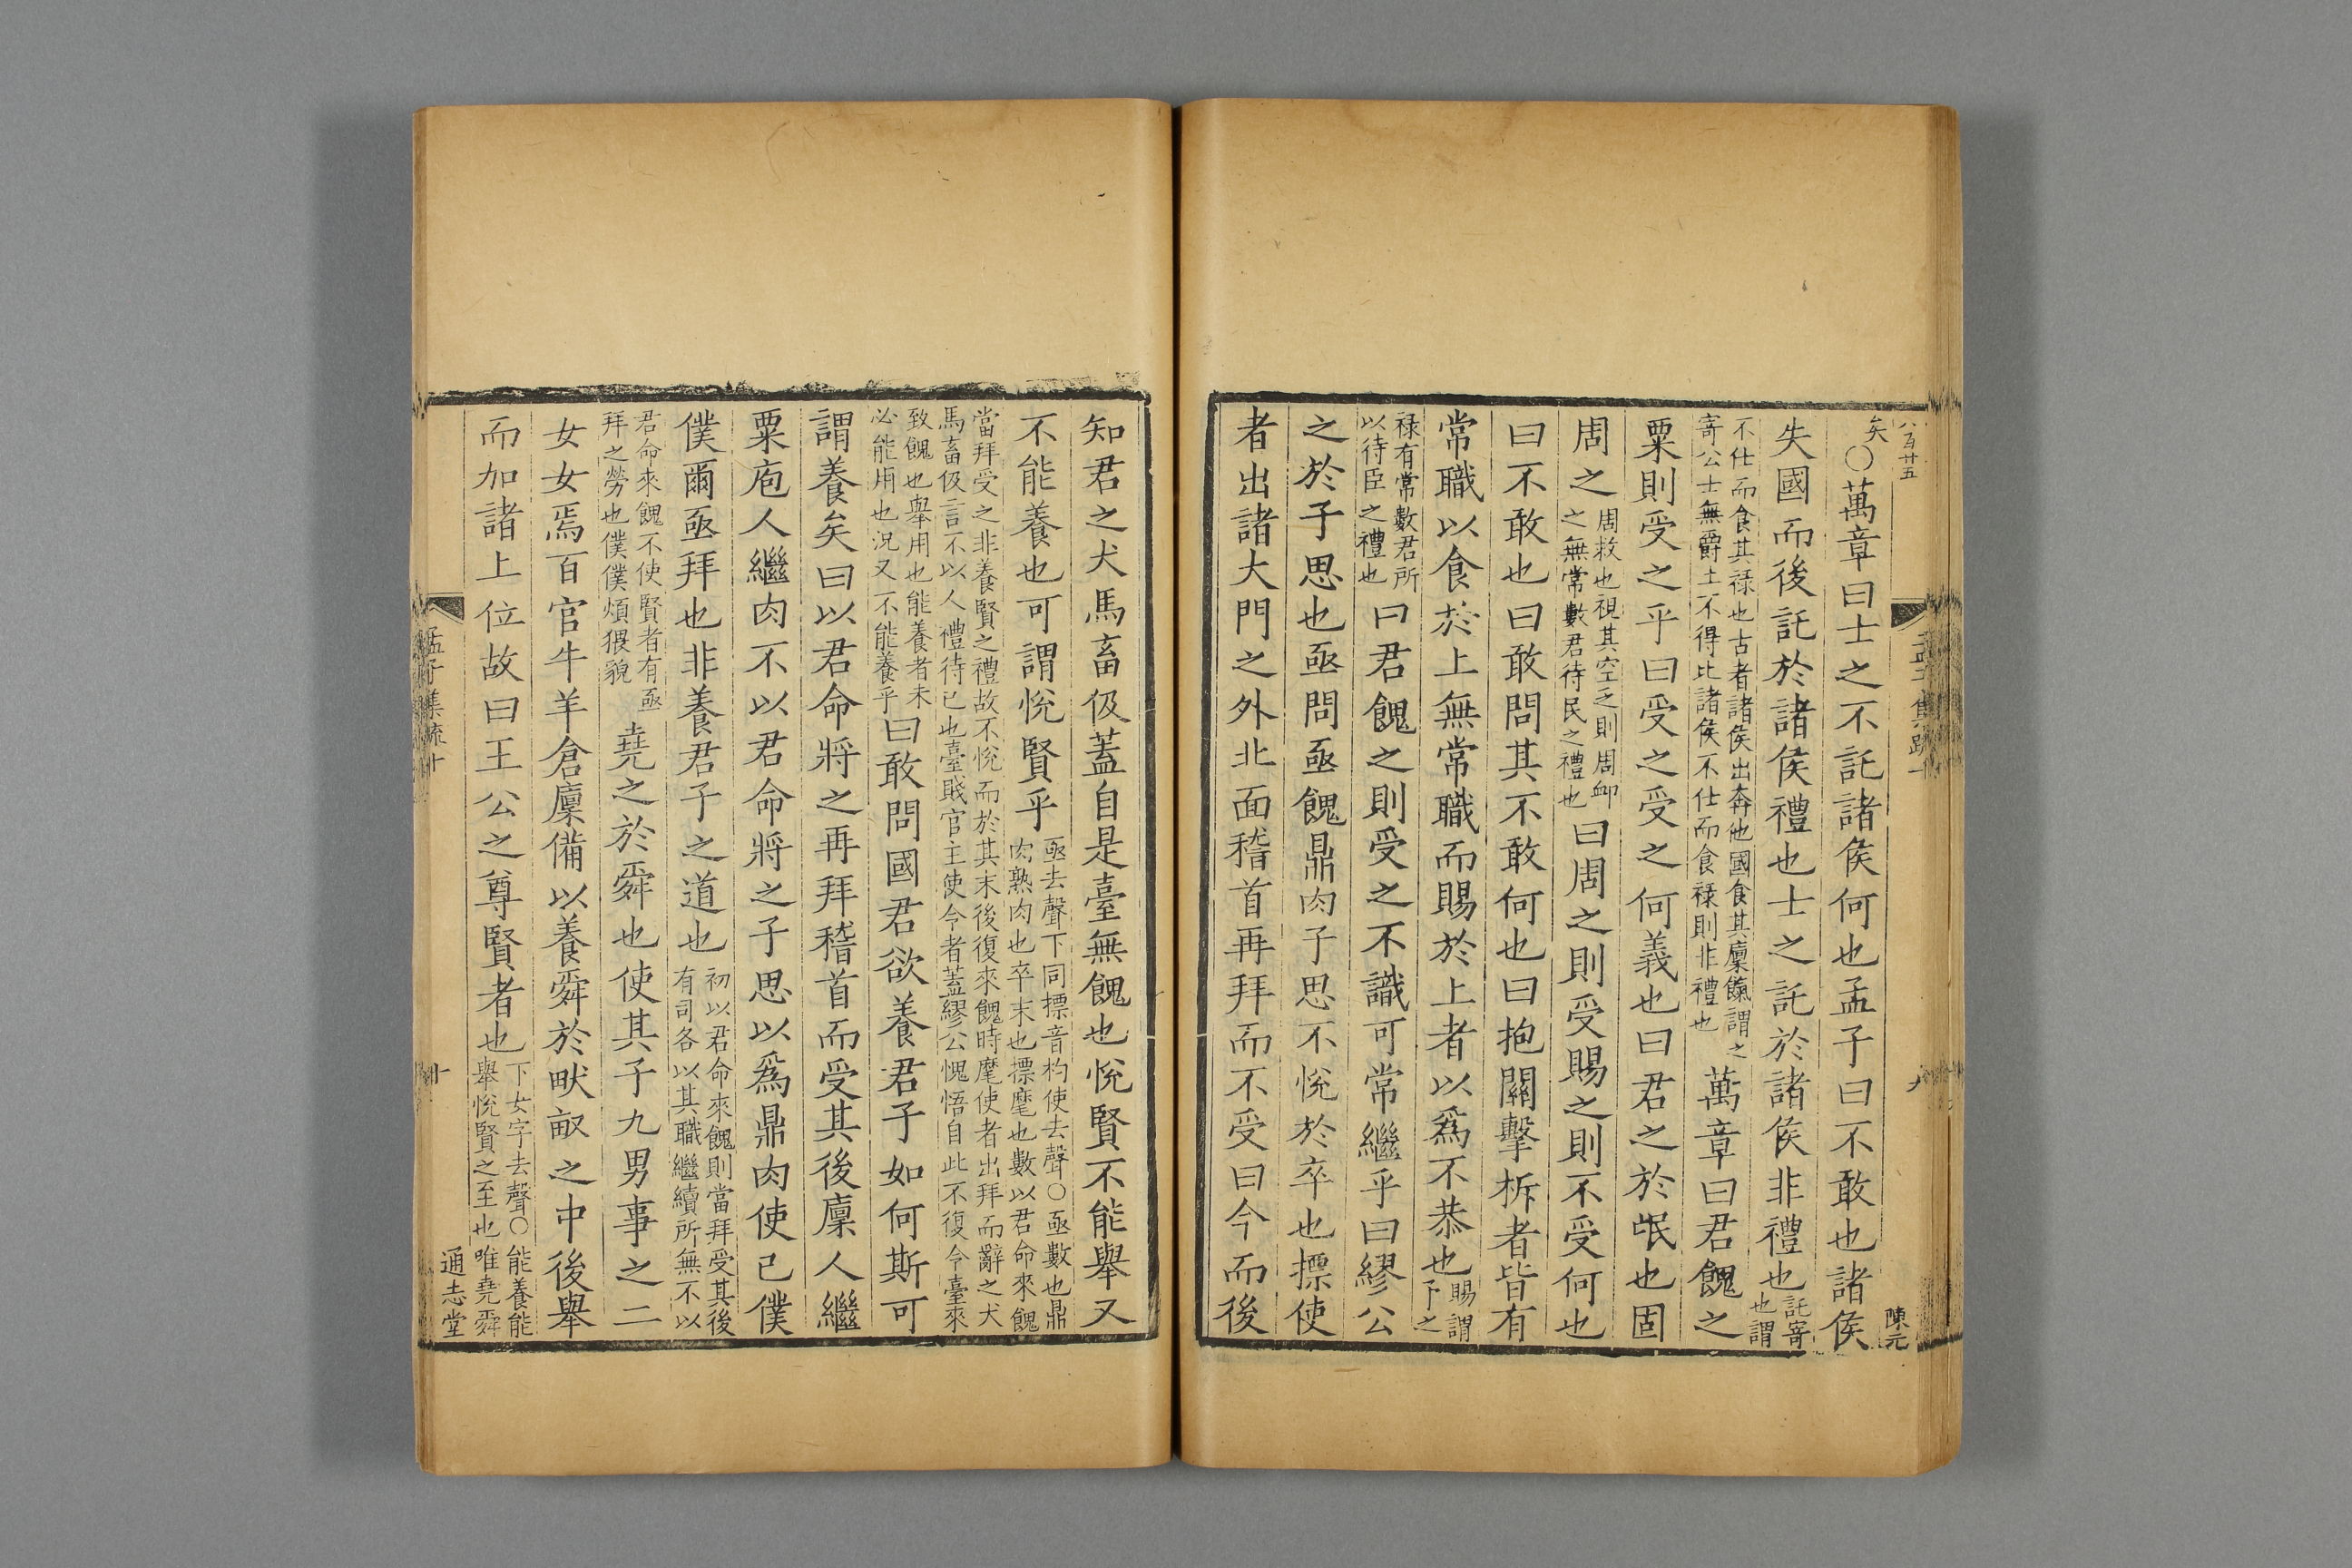 八百廿五
孟子集疏十
九
陳元
矣○萬章曰士之不託諸侯何也孟子曰不敢也諸侯
失國而後託於諸侯禮也士之託於諸侯非禮也託寄也謂
不仕而食其禄也古者諸侯出奔他國食其廩餼謂之
寄公士無爵土不得比諸侯不仕而食禄則非禮也萬章曰君餽之
粟則受之乎曰受之受之何義也曰君之於氓也固
周之周救也視其空乏則周卹之無常數君待民之禮也曰周之則受賜之則不受何也
曰不敢也曰敢問其不敢何也曰抱關擊柝者皆有
常職以食於上無常職而賜於上者以爲不恭也賜謂下之
禄有常數君所以待臣之禮也曰君餽之則受之不識可常繼乎曰繆公
之於子思也亟問亟餽鼎肉子思不悅於卒也摽使
者出諸大門之外北面稽首再拜而不受曰今而後
知君之犬馬畜伋蓋自是臺無餽也悅賢不能舉又
不能養也可謂悅賢乎亟去聲下同摽音杓使去聲○亟數也鼎肉熟肉也卒末也摽麾也數以君命來餽
當拜受之非養賢之禮故不悅而於其末後復來餽時麾使者出拜而辭之犬
馬畜伋言不以人禮待己也臺賤官主使令者蓋繆公愧悟自此不復令臺來
致餽也舉用也能養者未必能用也況又不能養乎曰敢問國君欲養君子如何斯可
謂養矣曰以君命將之再拜稽首而受其後廩人繼
粟庖人繼肉不以君命將之子思以爲鼎肉使己僕
僕爾亟拜也非養君子之道也初以君命來餽則當拜受其後有司各以其職繼續所無不以
君命來餽不使賢者有亟拜之勞也僕僕煩猥貌堯之於舜也使其子九男事之二
女女焉百官牛羊倉廩備以養舜於畎畝之中後舉
而加諸上位故曰王公之尊賢者也下女字去聲○能養能舉悅賢之至也唯堯舜
孟子集疏十
十
通志堂